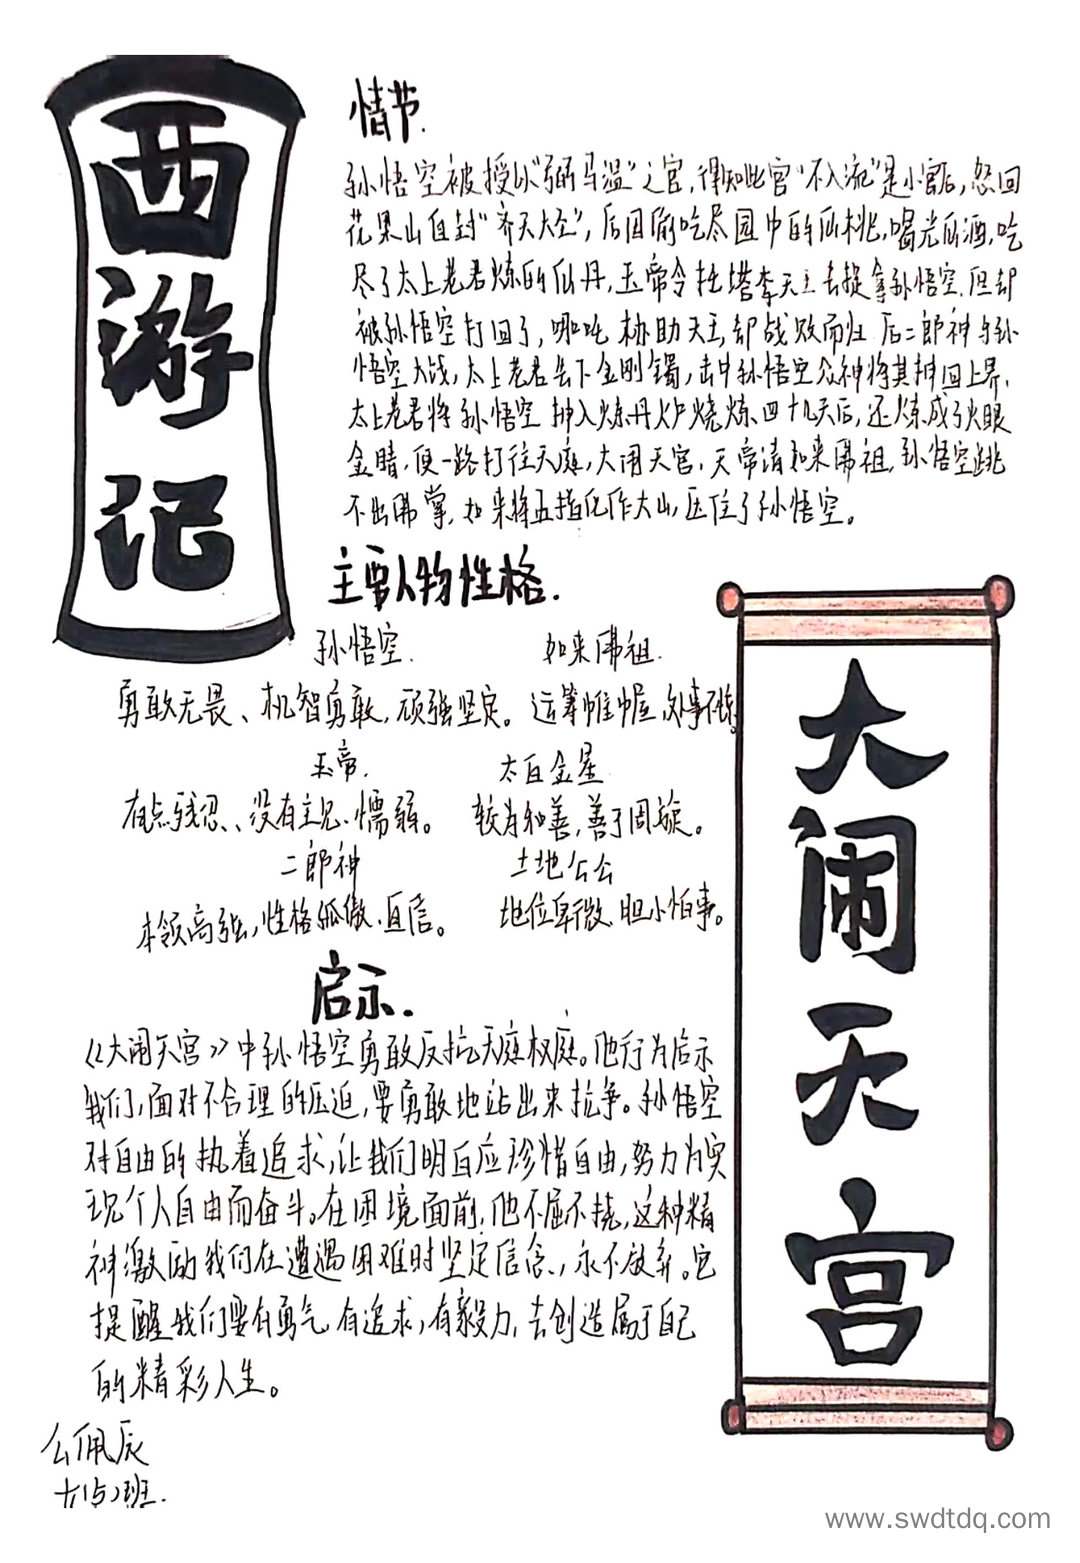 西游记
情节.
孙悟空被授以“弼马温”之官,得知此官“不入流”是小官后,怒回
花果山自封“齐天大圣”,后因偷吃尽园中的仙桃,喝光仙酒,吃
尽了太上老君炼的仙丹,玉帝令托塔李天王去捉拿孙悟空.但却
被孙悟空打回了,哪吒协助天王,却战败而归 后二郎神与孙
悟空大战,太上老君丢下金刚镯,击中孙悟空众神将其押回上界.
太上老君将孙悟空押入炼丹炉烧炼四十九天后,还炼成了火眼
金睛,便一路打往天庭,大闹天宫,天帝请如来佛祖,孙悟空跳
不出佛掌,如来将五指化作大山,压住了孙悟空。
主要人物性格.
孙悟空. 如来佛祖.
勇敢无畏、机智勇敢,顽强坚定。 运筹帷幄,处事不惊。
玉帝. 太白金星
有点残忍、没有主见、懦弱。 较为和善,善于周旋。
二郎神 土地公公
本领高强,性格孤傲、自信。 地位卑微、胆小怕事。
启示.
《大闹天宫》中孙悟空勇敢反抗天庭权庭。他行为启示
我们,面对不合理的压迫,要勇敢地站出来抗争。孙悟空
对自由的执着追求,让我们明白应珍惜自由,努力为实
现个人自由而奋斗。在困境面前,他不屈不挠,这种精
神激励我们在遭遇困难时坚定信念,永不放弃。它
提醒我们要有勇气 有追求,有毅力,去创造属于自己
的精彩人生。
大闹天宫
公佩辰
班.
www.swdtdq.com